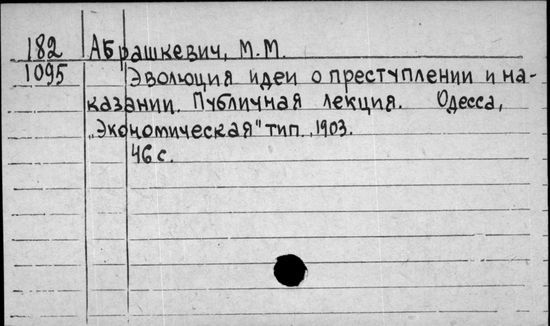 182 Абрашкевич, М.М.
1095 "Эволюция идеи о преступлении и на-
казании. Публичная лекция. Одесса,
„Экономическая" тип., 1903.
46 с.